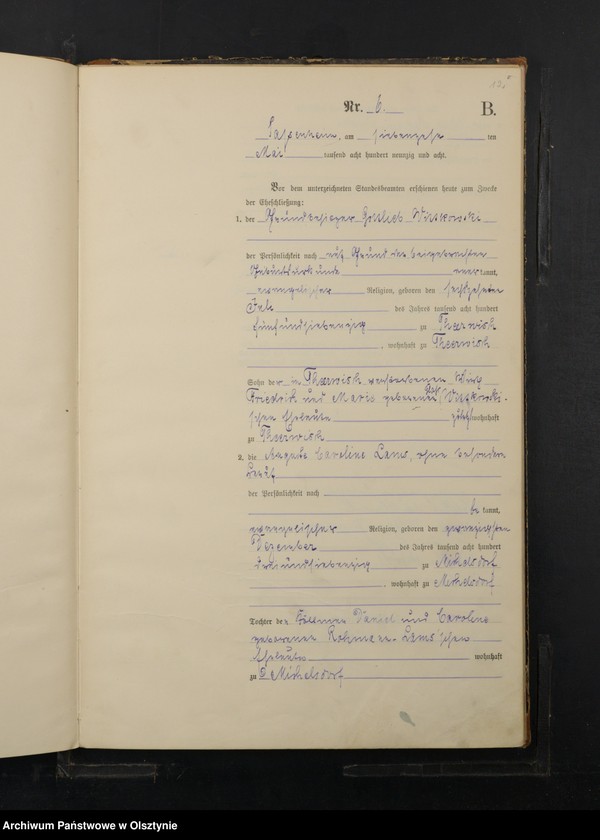 Nr. 6.
B.
am siebenzehn ten
Mai tausend acht hundert neunzig und acht.
Vor dem unterzeichneten Standesbeamten erschienen heute zum Zwecke
der Eheschließung:
1. der Grundbesitzer Gottlieb
der Persönlichkeit nach auf Grund der beigebrachten
Geburtsurkunde aner kannt,
evangelischer Religion, geboren den sechszehnten
Juli des Jahres tausend acht hundert
fünfundsiebenzig zu Theerwisch
, wohnhaft zu Theerwisch
Sohn der in Theerwisch verstorbenen Wirth
Friedrich und Marie geborene
schen Eheleute wohnhaft
zu Theerwisch
2. die Auguste Caroline Lams, ohne besonderen
Beruf
der Persönlichkeit nach
be kannt,
evangelischer Religion, geboren den zwanzigsten
Dezember des Jahres tausend acht hundert
dreiundsiebenzig zu Michelsdorf
, wohnhaft zu Michelsdorf
Tochter der Daniel und Caroline
geborenen Lams'schen
Eheleute wohnhaft
zu Michelsdorf
Archiwum Państwowe w Olsztynie